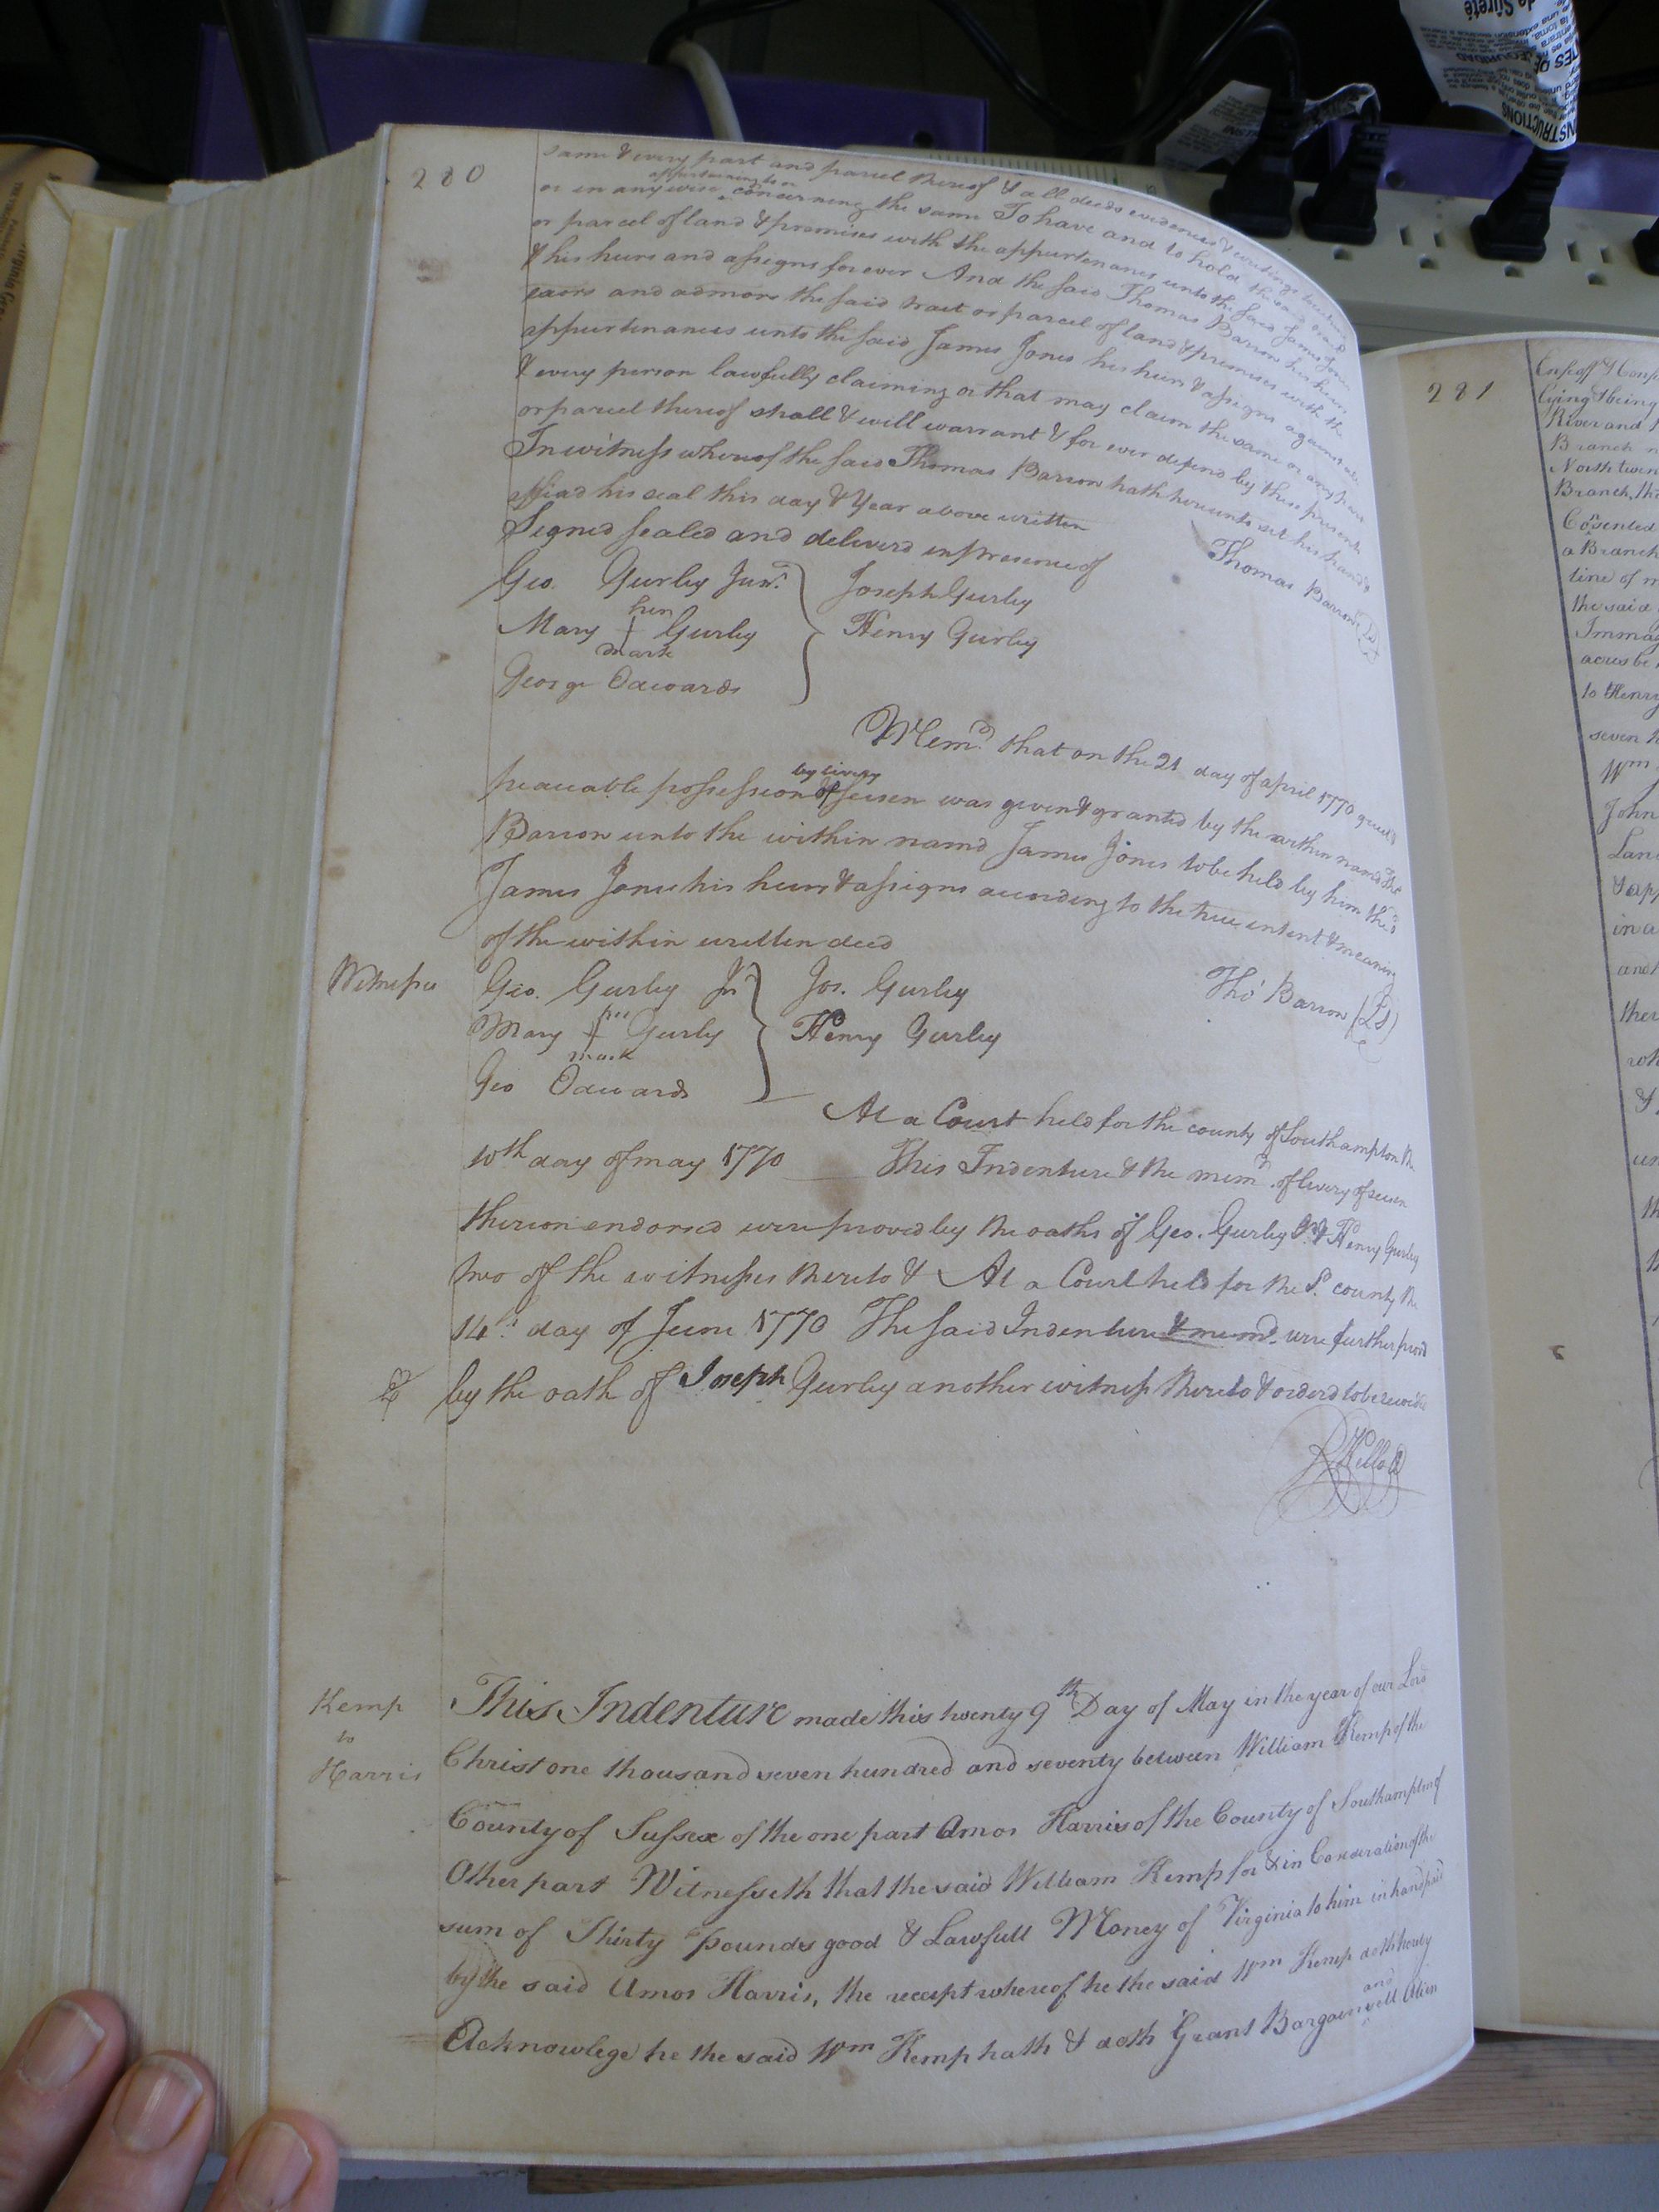 280
same & every part and parcel thereof & all deeds evidences & writings
appertaining to or
or in any wise concerning the same To have and to hold the said
or parcel of land & premises with the appurtenances unto the said James Jones
& his heirs and assigns for ever And the said Thomas Barron his heirs
exors and admors the said tract or parcel of land & premises with the
appurtenances unto the said James Jones his heirs & assigns against all
& every person lawfully claiming or that may claim the same or any part
or parcel thereof shall & will warrant & for ever defend by these presents
In witness whereof the said Thomas Barron hath hereunto set his hand &
affixd his seal this day & Year above written
Signed sealed and deliverd in presence of
Thomas Barron (LS)
Geo. Gurley Junr. Joseph Gurley
her
Mary + Gurley Henry Gurley
mark
George Edwards
Memd. that on the 21 day of april 1770 quiet &
by livery
peaceable possession of seisen was given & granted by the within namd Tho
Barron unto the within namd James Jones to be held by him the sd
James Jones his heirs & assigns according to the true intent & meaning
of the within written deed
Witnesses Geo. Gurley Jr Jos. Gurley Tho' Barron (LS)
her
Mary + Gurley Henry Gurley
mark
Geo Edwards
At a Court held for the county of Southampton the
10th day of may 1770 This Indenture & the memd. of livery of seisen
thereon endorsed were proved by the oaths of Geo. Gurley Jr & Henry Gurley
two of the witnesses thereto & At a Court held for the sd. county the
14th day of June 1770 The said Indenture & memd. were further provd
by the oath of Joseph Gurley another witness thereto & orderd to be recorded
R Kello
Kemp
to
Harris
This Indenture made this twenty 9th Day of May in the year of our Lord
Christ one thousand seven hundred and seventy between William Kemp of the
County of Sussex of the one part Amos Harris of the County of Southampton of
Other part Witnesseth that the said William Kemp for & in Consideration of the
sum of Thirty pounds good & Lawfull Money of Virginia to him in hand paid
by the said Amos Harris, the receipt whereof he the said Wm Kemp doth hereby
and
Acknowlege he the said Wm Kemp hath & doth Grant Bargain sell Alien
281
lying & being
River and
Branch
North twen
Branch, the
Consented
a Branch
line of m
the said
acres be
to Henry
seven h
Wm
John
Lan
& app
in a
and
ther
INSTRUCTIONS
de Sûreté